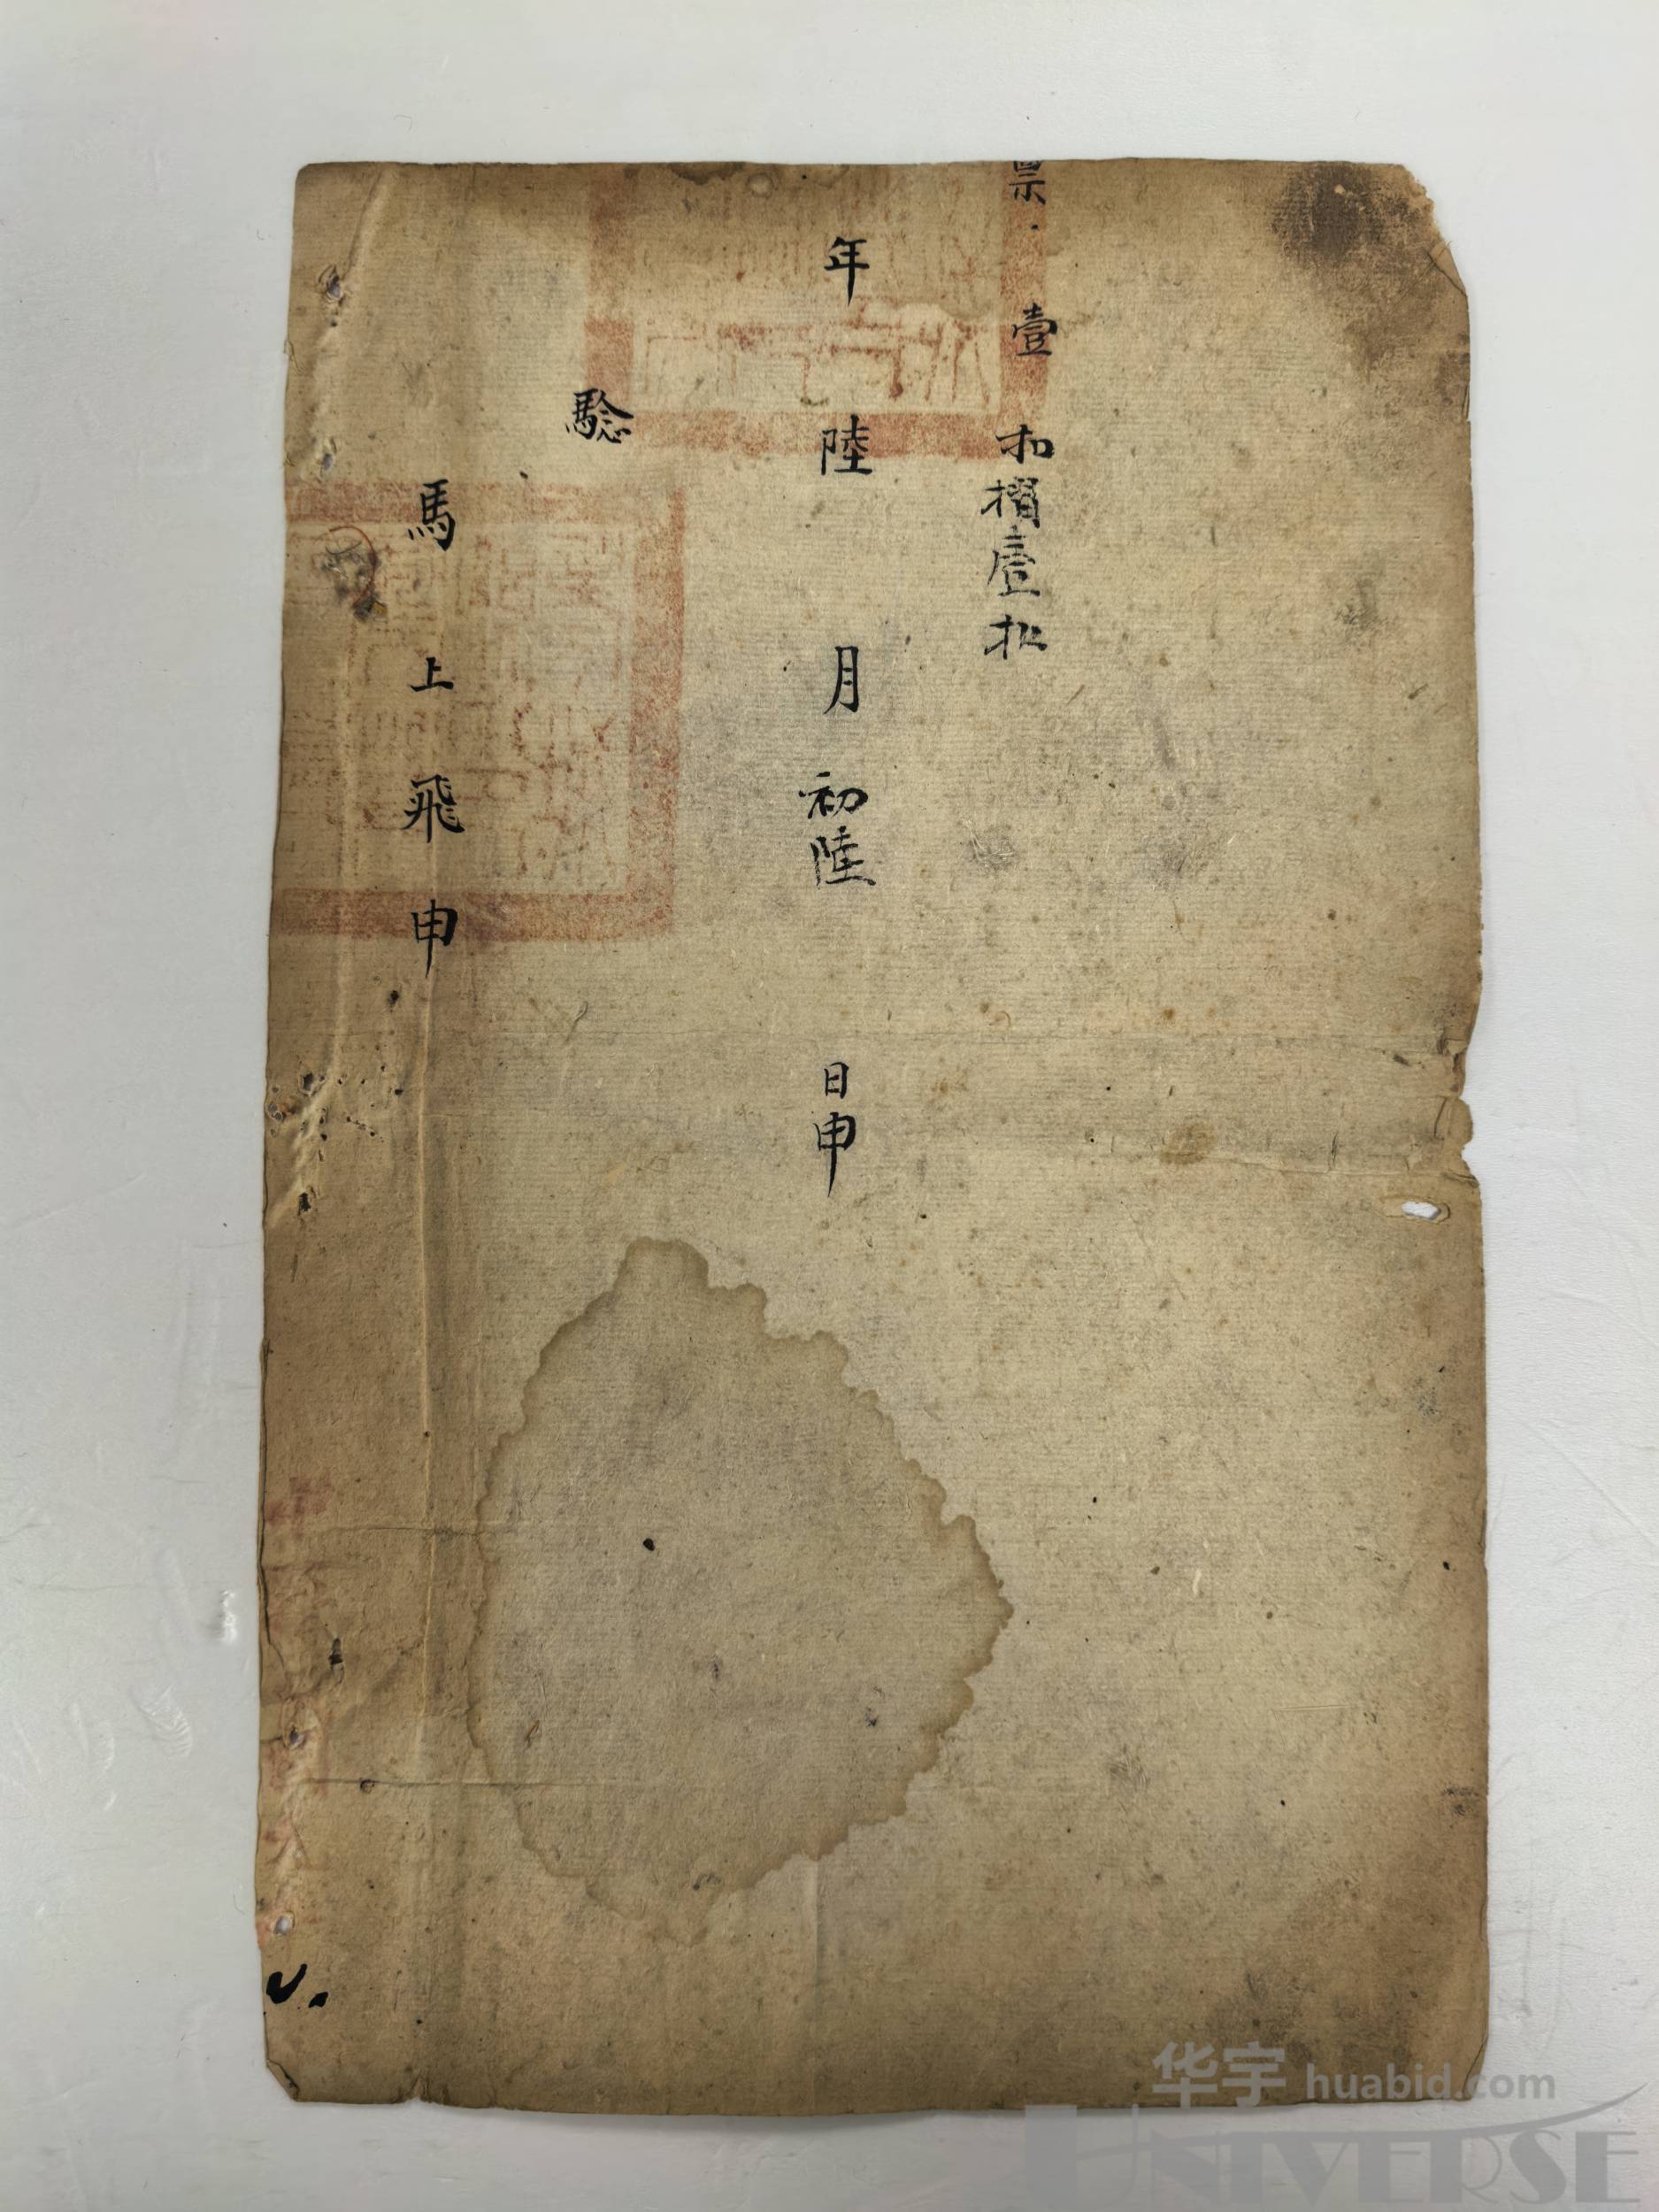 壹 扣摺壹扣
年 陸 月 初陸 日申
驗
馬上飛申
华宇 huabid.com
UNIVERSE